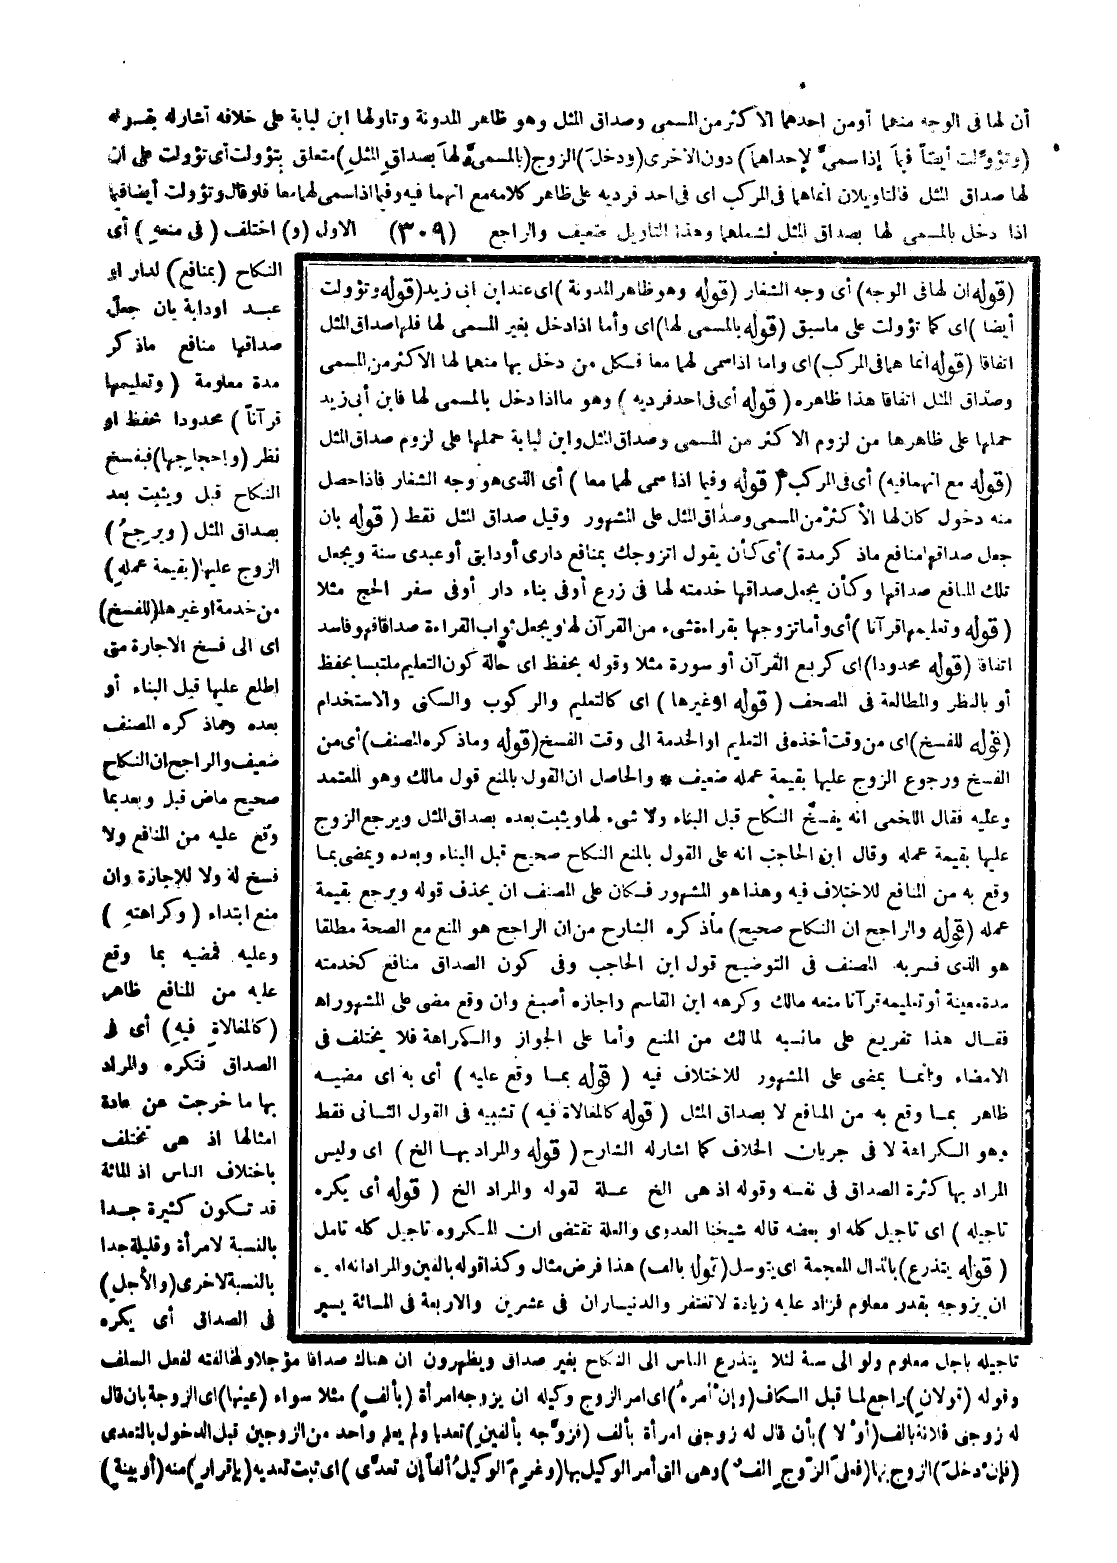 أن لها فى الوجه منهما أو من احدهما الاكثر من المسمى وصداق المثل وهو ظاهر المدونة وتاولها ابن لبابة على خلافه أشار له بقوله
(وتؤولت أيضا فيما إذا سمى لإحداهما) دون الاخرى (ودخل) الزوج (بالمسمى لها بصداق المثل) متعلق بتؤولت أى تؤولت على ان
لها صداق المثل فالتاويلان انماهما فى المركب اى فى احد فرديه على ظاهر كلامه مع انهما فيه وفيما اذا سمى لهما معا فلو قال وتؤولت أيضا فيما
اذا دخل بالمسمى لها بصداق المثل لشملهما وهذا التاويل ضعيف والراجح (٣٠٩) الاول (و) اختلف (فى منعه) أى
النكاح (بمنافع) لدار او
عبد اودابة بان جعل
صداقها منافع ماذكر
مدة معلومة (وتعليمها
قرآنا) محدودا بحفظ او
نظر (وإحجاجها) فيفسخ
النكاح قبل ويثبت بعد
بصداق المثل (ويرجع)
الزوج عليها (بقيمة عمله)
من خدمة او غيرها (للفسخ)
اى الى فسخ الاجارة متى
اطلع عليها قبل البناء أو
بعده وماذكره المصنف
ضعيف والراجح ان النكاح
صحيح ماض قبل وبعد بما
وقع عليه من المنافع ولا
فسخ له ولا للإجازة وان
منع ابتداء (وكراهته)
وعليه فمضيه بما وقع
عليه من المنافع ظاهر
(كالمغالاة فيه) أى فى
الصداق فتكره والمراد
بها ما خرجت عن عادة
امثالها اذ هى تختلف
باختلاف الناس اذ المائة
قد تكون كثيرة جدا
بالنسبة لامرأة وقليلة جدا
بالنسبة لاخرى (والأجل)
فى الصداق أى يكره
(قوله ان لها فى الوجه) أى وجه الشغار (قوله وهو ظاهر المدونة) اى عند ابن ابى زيد (قوله وتؤولت
أيضا) اى كما تؤولت على ماسبق (قوله بالمسمى لها) اى وأما اذا دخل بغير المسمى لها فلها صداق المثل
اتفاقا (قوله انما هما فى المركب) اى واما اذا سمى لهما معا فكل من دخل بها منهما لها الاكثر من المسمى
وصداق المثل اتفاقا هذا ظاهره (قوله أى فى احد فرديه) وهو ما اذا دخل بالمسمى لها فابن أبى زيد
حملها على ظاهرها من لزوم الاكثر من المسمى وصداق المثل وابن لبابة حملها على لزوم صداق المثل
(قوله مع انهما فيه) أى فى المركب (قوله وفيما اذا سمى لهما معا) أى الذى هو وجه الشغار فاذا حصل
منه دخول كان لها الأكثر من المسمى وصداق المثل على المشهور وقيل صداق المثل فقط (قوله بان
جعل صداقها منافع ماذكر مدة) أى كأن يقول اتزوجك بمنافع دارى أودابتى أوعبدى سنة ويجعل
تلك المنافع صداقها وكأن يجعل صداقها خدمته لها فى زرع أوفى بناء دار أوفى سفر الحج مثلا
(قوله وتعليمها قرآنا) أى وأما تزوجها بقراءة شىء من القرآن لها ويجعل ثواب القراءة صداقا فهو فاسد
اتفاقا (قوله محدودا) اى كربع القرآن أو سورة مثلا وقوله بحفظ اى حالة كون التعليم ملتبسا بحفظ
أو بالنظر والمطالعة فى المصحف (قوله اوغيرها) اى كالتعليم والركوب والسكنى والاستخدام
(قوله للفسخ) اى من وقت أخذه فى التعليم اوالخدمة الى وقت الفسخ (قوله وماذكره المصنف) أى من
الفسخ ورجوع الزوج عليها بقيمة عمله ضعيف * والحاصل ان القول بالمنع قول مالك وهو المعتمد
وعليه فقال اللخمى انه يفسخ النكاح قبل البناء ولا شىء لها ويثبت بعده بصداق المثل ويرجع الزوج
عليها بقيمة عمله وقال ابن الحاجب انه على القول بالمنع النكاح صحيح قبل البناء وبعده ويمضى بما
وقع به من المنافع للاختلاف فيه وهذا هو المشهور فكان على المصنف ان يحذف قوله ويرجع بقيمة
عمله (قوله والراجح ان النكاح صحيح) ماذكره الشارح من ان الراجح هو المنع مع الصحة مطلقا
هو الذى فسر به المصنف فى التوضيح قول ابن الحاجب وفى كون الصداق منافع كخدمته
مدة معينة أو تعليمه قرآنا منعه مالك وكرهه ابن القاسم واجازه أصبغ وان وقع مضى على المشهور اه
فقال هذا تفريع على مانسبه لمالك من المنع وأما على الجواز والكراهة فلا يختلف فى
الامضاء وانما يمضى على المشهور للاختلاف فيه (قوله بما وقع عليه) أى به اى مضيه
ظاهر بما وقع به من المنافع لا بصداق المثل (قوله كالمغالاة فيه) تشبيه فى القول الثانى فقط
وهو الكراهة لا فى جريان الخلاف كما اشارله الشارح (قوله والمراد بها الخ) اى وليس
المراد بها كثرة الصداق فى نفسه وقوله اذ هى الخ علة لقوله والمراد الخ (قوله أى يكره
تاجيله) اى تاجيل كله او بعضه قاله شيخنا العدوى والعلة تقتضى ان المكروه تاجيل كله تامل
(قوله يتذرع) بالذال المعجمة اى يتوسل (قوله بالف) هذا فرض مثال وكذا قوله بالفين والمراد انه امره
ان يزوجه بقدر معلوم فزاد عليه زيادة لاتغتفر والديناران فى عشرين والاربعة فى المائة يسير
تاجيله باجل معلوم ولو الى سنة لئلا يتذرع الناس الى النكاح بغير صداق ويظهرون ان هناك صداقا مؤجلا ولمخالفته لفعل السلف
وقوله (قولان) راجع لما قبل الكاف (وإن أمره) اى امر الزوج وكيله ان يزوجه امرأة (بألف) مثلا سواء (عينها) اى الزوجة بان قال
له زوجنى فلانة بالف (أولا) بأن قال له زوجنى امرأة بألف (فزوجه بألفين) تعديا ولم يعلم واحد من الزوجين قبل الدخول بالتعدى
(فإن دخل) الزوج بها (فعلى الزوج الف) وهى التى أمر الوكيل بها (وغرم الوكيل ألفا إن تعدى) اى ثبت تعديه (بإقرار) منه (أو بينة)